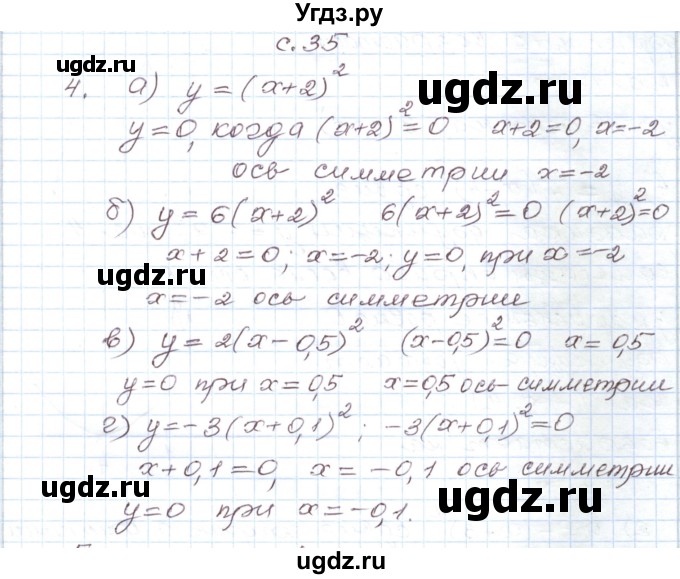 Угдз.ру
с. 35
4. а) y = (x+2)²
ugdz.ru
y=0, когда (x+2)²=0 x+2=0, x=-2
ось симметрии x=-2
б) y = 6(x+2)² 6(x+2)²=0 (x+2)²=0
x+2=0; x=-2; y=0, при x=-2
ugdz.ru
x=-2 ось симметрии
ugdz.ru
в) y = 2(x-0,5)² (x-0,5)²=0 x=0,5
y=0 при x=0,5 x=0,5 ось симметрии
г) y=-3(x+0,1)²; -3(x+0,1)²=0
x+0,1=0, x=-0,1 ось симметрии
ugdz.ru
ugdz.ru
y=0 при x=-0,1.
ugdz.ru